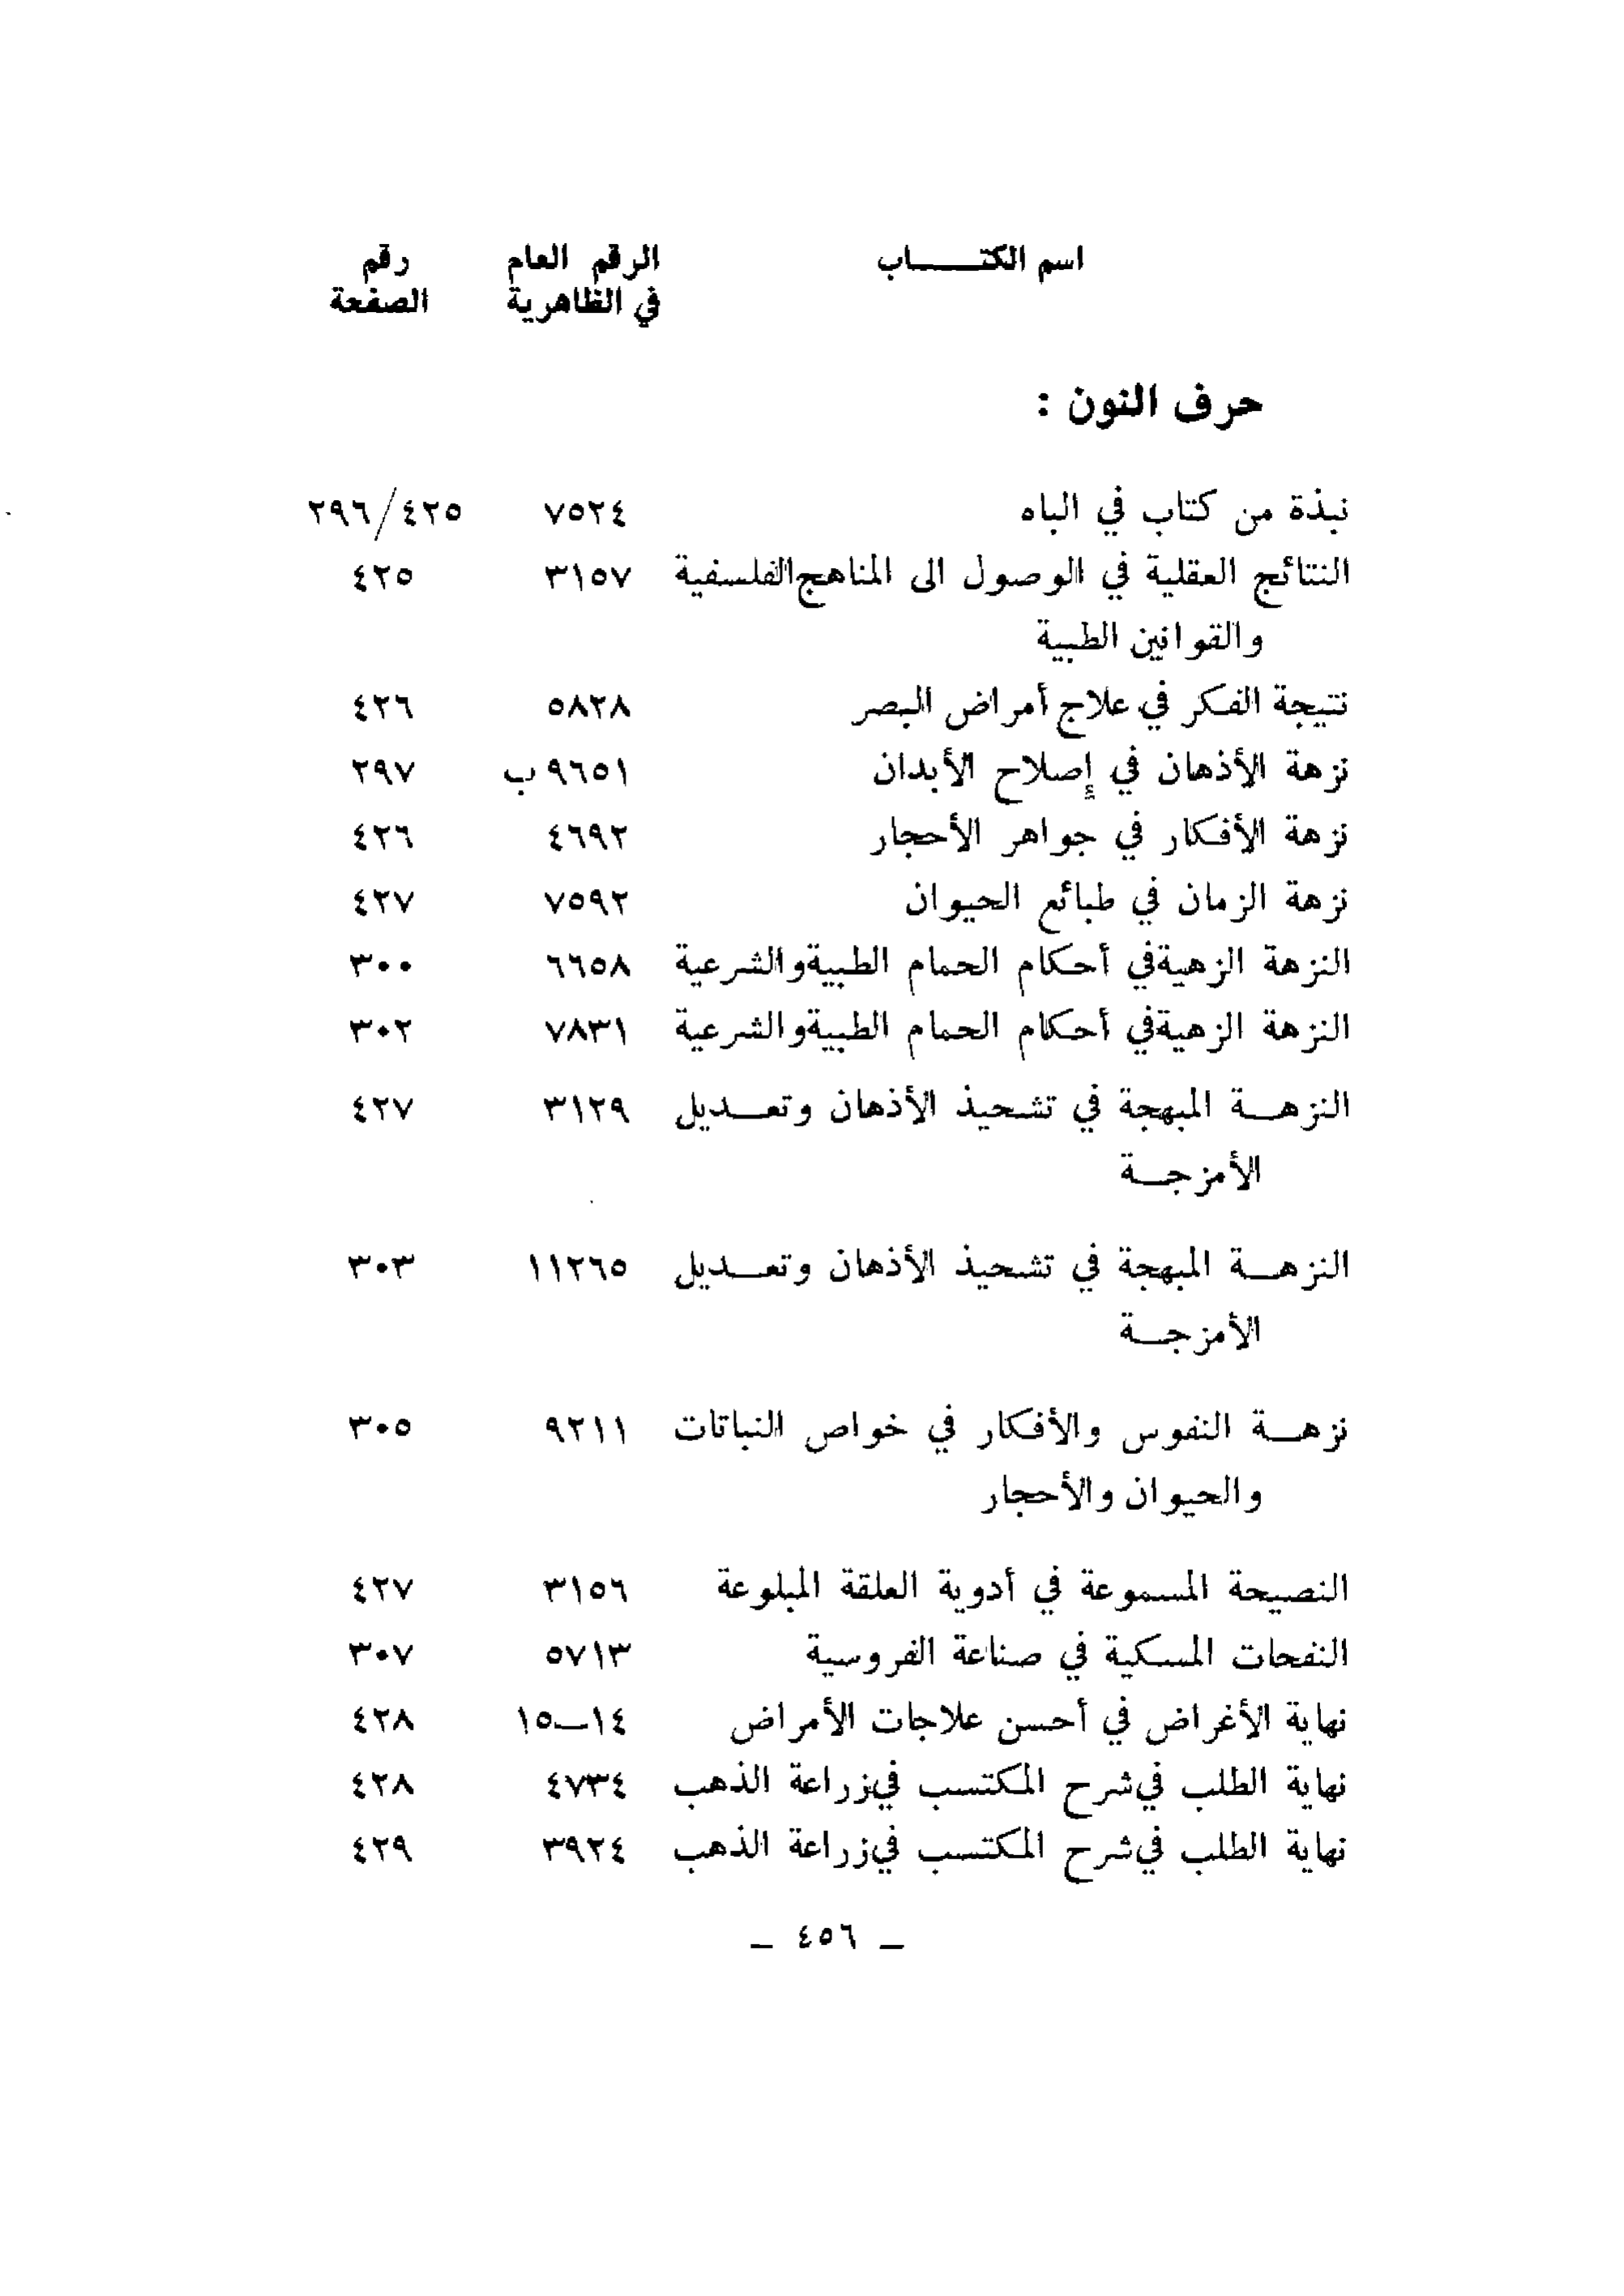 اسم الكتـــــاب الرقم العام رقم
في الظاهرية الصفحة
حرف النون :
نبذة من كتاب في الباه ٧٥٢٤ ٢٩٦/٤٢٥
النتائج العقلية في الوصول الى المناهج الفلسفية ٣١٥٧ ٤٢٥
والقوانين الطبية
نتيجة الفكر في علاج أمراض البصر ٥٨٢٨ ٤٢٦
نزهة الأذهان في إصلاح الأبدان ٩٦٥١ ب ٢٩٧
نزهة الأفكار في جواهر الأحجار ٤٦٩٢ ٤٢٦
نزهة الزمان في طبائع الحيوان ٧٥٩٢ ٤٢٧
النزهة الزهية في أحكام الحمام الطبية والشرعية ٦٦٥٨ ٣٠٠
النزهة الزهية في أحكام الحمام الطبية والشرعية ٧٨٣١ ٣٠٢
النزهــة المبهجة في تشحيذ الأذهان وتعــديل ٣١٢٩ ٤٢٧
الأمزجــة
النزهــة المبهجة في تشحيذ الأذهان وتعــديل ١١٢٦٥ ٣٠٣
الأمزجــة
نزهــة النفوس والأفكار في خواص النباتات ٩٢١١ ٣٠٥
والحيوان والأحجار
النصيحة المسموعة في أدوية العلقة المبلوعة ٣١٥٦ ٤٢٧
النفحات المسكية في صناعة الفروسية ٥٧١٣ ٣٠٧
نهاية الأغراض في أحسن علاجات الأمراض ١٤—١٥ ٤٢٨
نهاية الطلب في شرح المكتسب في زراعة الذهب ٤٧٣٤ ٤٢٨
نهاية الطلب في شرح المكتسب في زراعة الذهب ٣٩٢٤ ٤٢٩
— ٤٥٦ —